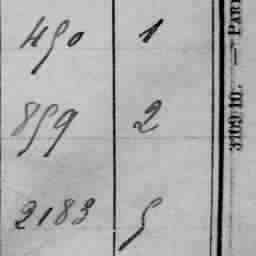 450 1
859 2
2183 5
3109 10. — PARI